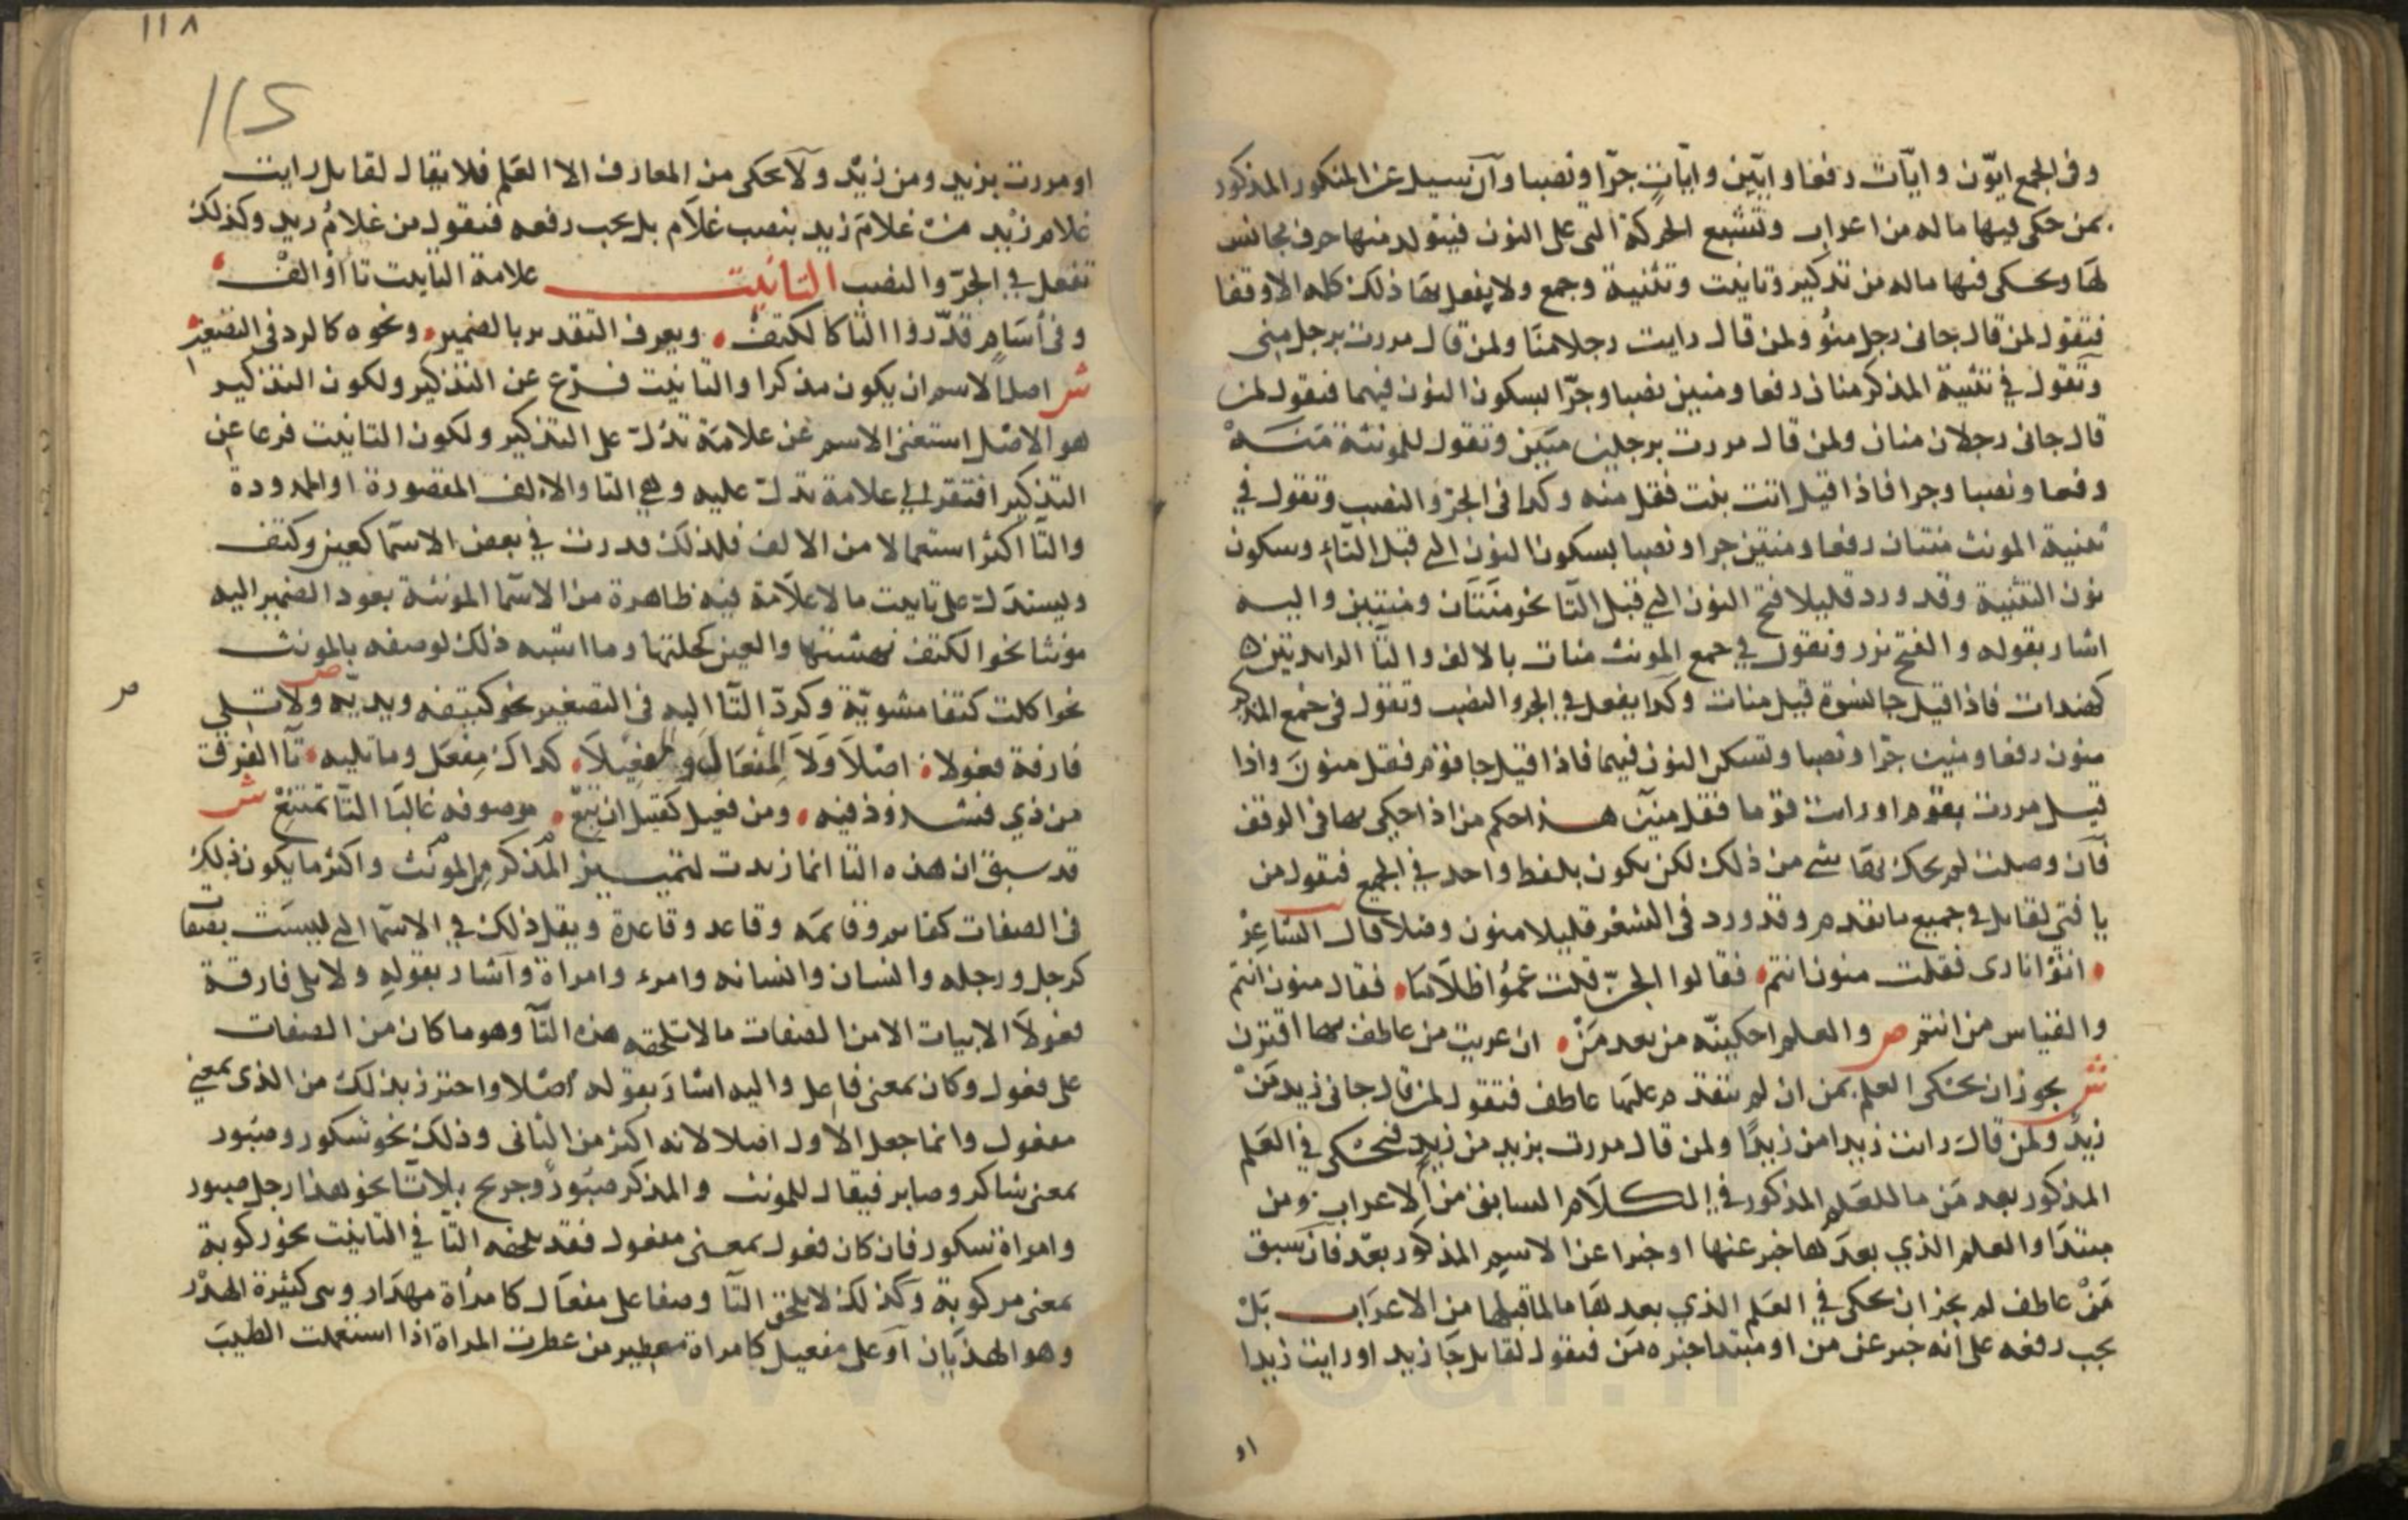 وفى الجمع ايّون وايّات رفعا وايّين وايّاتٍ جرّا ونصبا وان سيل عن المنكور المذكور
بمن حكى فيها ماله من اعراب وتشبع الحركة التى على النون فيتولد منها حرف مجانس
لها ويحكى فيها ماله من تذكير وتانيث وتثنية وجمع ولا يفعل بها ذلك كله الا وقفا
فتقول لمن قال جانى رجل منُو ولمن قال رايت رجلا منَا ولمن قال مررت برجل منِى
وتقول في تثنية المذكر منان رفعا ومنين نصبا وجرّا بسكون النون فيهما فتقول لمن
قال جانى رجلان منان ولمن قال مررت برجلين منَين وتقول للمونثة مَنَهْ
رفعا ونصبا وجرا فاذا قيل اتت بنت فقل منه وكذا فى الجرّ والنصب وتقول في
تثنية المونث منتان رفعا ومنتين جرا ونصبا بسكون النون التى قبل التاء وسكون
نون التثنية وقد ورد قليلا فتح النون التي قبل التا نحو منَتَان ومنتين واليه
اشار بقوله والفتح نزر وتقول في جمع المونث منات بالالف والتا الزايدتين
كهندات فاذا قيل جا نسوة قيل منات وكذا يفعل في الجر والنصب وتقول فى جمع المذكر
منون رفعا ومنين جرّا ونصبا وتسكن النون فيهما فاذا قيل جا قوم فقل منونَ واذا
قيل مررت بقوم او رايت قوما فقل منين هذا حكم من اذا حكى بها فى الوقف
فان وصلت لم يحك بها شي من ذلك لكن يكون بلفظ واحد في الجميع فتقول من
يا فتى لقايل في جميع ما تقدم وقد ورد فى الشعر قليلا منون وصلا قال الشاعِرْ
اتوْا نارى فقلت منون انتم فقالوا الجنّ قلت عمُوا ظلَاما فقال منون انتم
والقياس من انتم ص والعلم احكينّه من بعد مَنْ ان عريت من عاطف بها اقترن
ش يجوز ان يحكى العلم بمن ان لم يتقدم عليها عاطف فتقول لمن قال جانى زيد مَنْ
زيدٌ ولمن قال رايت زيدا من زيدًا ولمن قال مررت بزيد من زيدٍ فيحكى في العَلم
المذكور بعد مَن ما للعَلم المذكور في الكلَام السابق من الاعراب ومن
مبتدَا والعلم الذي بعدَ لها خبر عنها او خبرا عن الاسم المذكور بعد فان سبق
مَنْ عاطف لم يجز ان يحكى في العَلم الذي بعد لها مالما قبلها من الاعرَاب بَلْ
يجب رفعه على انه خبر عن من او مبتدا خبره مَن فتقول لقايل جَا زيد او رايت زيدا
او
١١٨
او مررت بزيد ومن زيْد ولَا يحكى من المعارف الا العَلم فلا يقال لقايل رايت
غلام زيْد منْ غلامَ زيد بنصب غلَام بل يجب رفعه فتقول من غلامُ زيد وكذلك
تفعل في الجرّ والنصب التانيث علامة التانيث تا او الف
وفى اسَامٍ قدّروا التا كالكتف ويعرف التقدير بالضمير ونحوه كالرد فى التصغير
ش اصل الاسم ان يكون مذكرا والتانيث فرع عن التذكير ولكون التذكير
هو الاصْل استغنى الاسم عن علامَة تدُلّ على التذكير ولكون التانيث فرعا عن
التذكير افتقر الى علامة تدلّ عليه وهي التا والالف المقصورة او الممدودة
والتَا اكثر استعمالا من الالف فلذلك قدرت في بعض الاسمَا كعين وكتف
ويستدَلّ على تانيث ما لا علَامَة فيه ظاهرة من الاسمَا المونثة بعود الضمير اليه
مونثا نحو الكتف نهشتها والعين كحلتها وما اشبه ذلك لوصفه بالمونث
نحو اكلت كتفا مشويّة وكردّ التَا اليه فى التصغير نحو كتيفه ويديّه ص ولَا تلي
فارقة فعولا اصْلاً ولَا المِفعَال والمِفعِيلَا كذاك مِفعَل وما تليه تا الفرق
من ذي فشذوذ فيه ومن فعيل كقتيل ان تبعْ موصوفه غالبَا التّا تمتنِعْ ش
قد سبق ان هذه التا انما زيدت لتمييز المذكر من المونث واكثر ما يكون ذلك
فى الصفات كقايم وقايمَه وقاعد وقاعدة ويقل ذلك في الاسمَا التى ليست بصفات
كرجل ورجله وانسان وانسانه وامرء وامراة واشار بقوله ولا تلى فارقة
فعولَا الابيات الا من الصفات ما لا تلحقه هذه التَا وهو ما كان من الصفات
على فعول وكان بمعنى فاعل واليه اشار بقوله اصْلا واحترز بذلك من الذى بمعنى
مفعول وانما جعل الاول اصلا لانه اكثر من الثانى وذلك نحو شكور وصبُور
بمعنى شاكر وصابر فيقال للمونث والمذكر صبُورٌ وجريح بلا تا نحو هذا رجل صبور
وامراة شكور فان كان فعول بمعنى مفعول فقد تلحقه التا في التانيث نحو ركوبة
بمعنى مركوبة وكذلك لا تلحق التَا وصفا على مفعَال كامرأة مهذَار وهى كثيرة الهذْر
وهو الهذَيان اَو على مفعيل كامراة معطير من عطرت المراة اذا استعملت الطيبَ